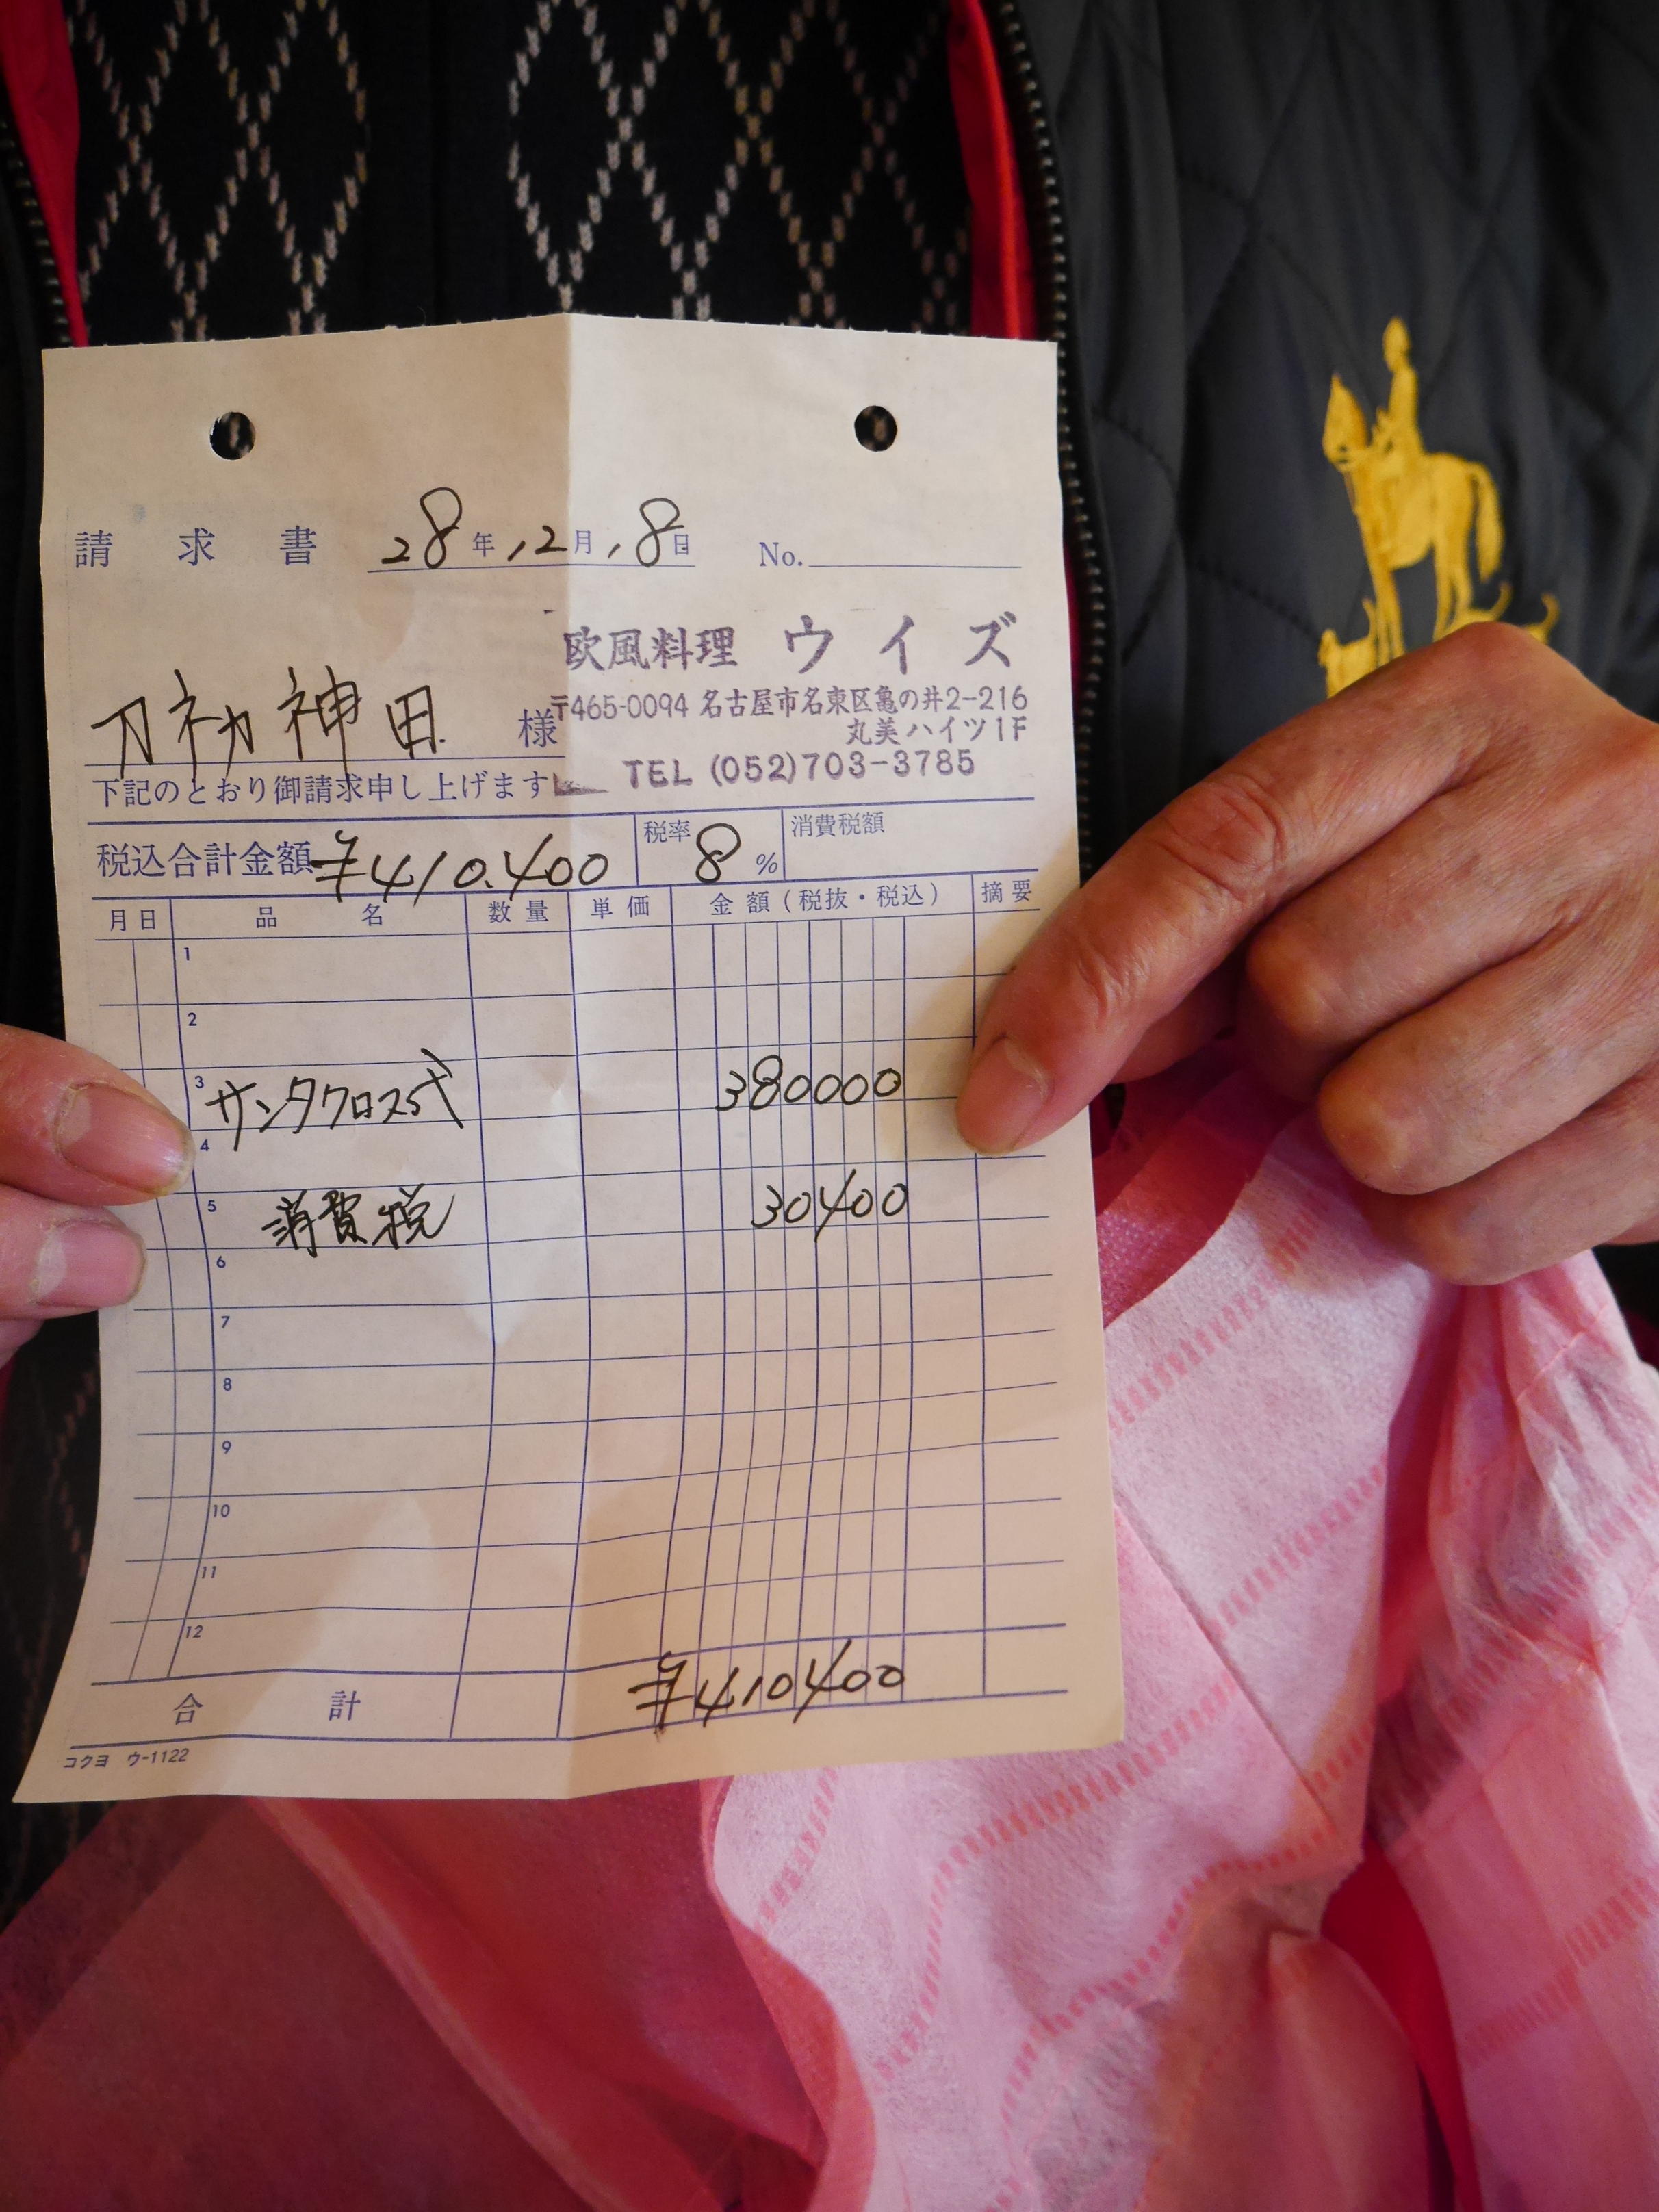 請求書 28年12月18日 No.
欧風料理 ウイズ
〒465-0094 名古屋市名東区亀の井2-216
丸美ハイツ1F
TEL (052)703-3785
神田 様
下記のとおり御請求申し上げます
税込合計金額 ¥410.400 税率 8% 消費税額
月日 品名 数量 単価 金額(税抜・税込) 摘要
1
2
3 サンタクロス式 380000
4
5 消費税 30400
6
7
8
9
10
11
12
合計 ¥410400
コクヨ ウ-1122